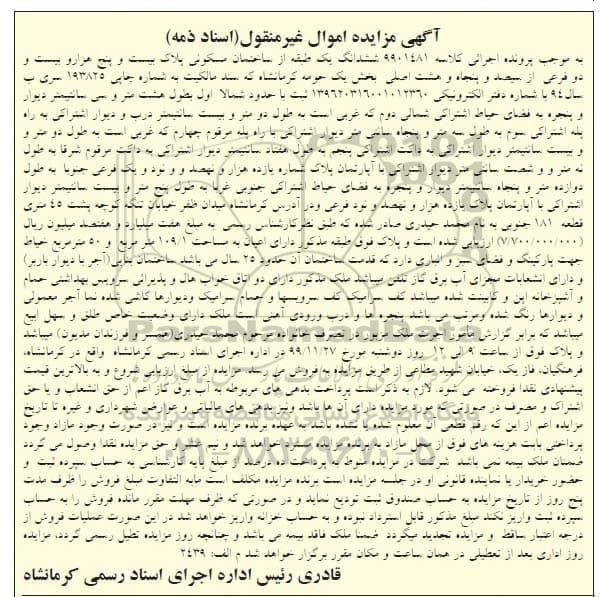 آگهی مزایده اموال غیرمنقول(اسناد ذمه)
به موجب پرونده اجرائی کلاسه ۹۹۰۱۴۸۱ ششدانگ یک طبقه از ساختمان مسکونی پلاک بیست و پنج هزارو بیست و
دو فرعی از سیصد و پنجاه و هشت اصلی بخش یک حومه کرمانشاه که سند مالکیت به شماره چاپی ۱۹۳۸۲۵ سری ب
سال ۹۴ با شماره دفتر الکترونیکی ۱۳۹۶۲۰۳۱۶۰۰۱۰۱۲۳۶۰ ثبت با حدود شمالا اول بطول هشت متر و سی سانتیمتر دیوار
و پنجره به فضای حیاط اشتراکی شمالی دوم که غربی است به طول دو متر و بیست سانتیمتر درب و دیوار اشتراکی به راه
پله اشتراکی سوم به طول سه متر و پنجاه سانتی متر دیوار اشتراکی با راه پله مرقوم چهارم که غربی است به طول دو متر و
بیست سانتیمتر دیوار اشتراکی به داکت اشتراکی پنجم به طول هفتاد سانتیمتر دیوار اشتراکی به داکت مرقوم شرقا به طول
نه متر و و شصت سانتی متر دیوار اشتراکی با آپارتمان پلاک شماره یازده هزار و نهصد و و نود و یک فرعی جنوبا به طول
دوازده متر و پنجاه سانتیمتر دیوار و پنجره به فضای حیاط اشتراکی جنوبی غربا به طول پنج متر و بیست سانتیمتر دیوار
اشتراکی با آپارتمان پلاک یازده هزار و نهصد و نود فرعی ودر آدرس کرمانشاه میدان ظفر خیابان تنگه کوچه پشت ۴۵ متری
قطعه ۱۸۱ جنوبی به نام محمد حیدری صادر شده که طبق نظرکارشناس رسمی به مبلغ هفت میلیارد و هفتصد میلیون ریال
(۷/۷۰۰/۰۰۰/۰۰۰) ارزیابی شده است و پلاک فوق طبقه مذکور دارای اعیان به مساحت ۱۰۹/۱ متر مربع و ۵۰ مترمربع حیاط
جهت پارکینگ و فضای سبز و انباری دارد که قدمت ساختمان آن حدود ۲۵ سال می باشد ساختمان بنائی(آجر با دیوار باربر)
و دارای انشعابات مجزای آب برق گاز تلفن میباشد ملک مذکور دارای دو اتاق خواب هال و پذیرائی سرویس بهداشتی حمام
و آشپزخانه اپن و کابینت شده میباشد کف سرامیک کف سرویسها و حمام سرامیک ودیوارها کاشی شده نما آجر معمولی
و دیوارها رنگ شده ومرتب می باشد پنجره ها و درب ورودی آهنی است ملک دارای وضعیت خاص طلق و سهل البیع
میباشد که برابر گزارش مامور اجرا ملک مزبور در تصرف خانواده مرحوم محمد حیدری (همسر و فرزندان مدیون) میباشد
و پلاک فوق از ساعت ۹ الی ۱۲ روز دوشنبه مورخ ۹۹/۱۱/۲۷ در اداره اجرای اسناد رسمی کرمانشاه واقع در کرمانشاه،
فرهنگیان، فاز یک، خیابان شهید مطاعی از طریق مزایده به فروش می رسد مزایده از مبلغ ارزیابی شروع و به بالاترین قیمت
پیشنهادی نقدا فروخته می شود. لازم به ذکر است پرداخت بدهی های مربوطه به آب برق گاز اعم از حق انشعاب و یا حق
اشتراک و مصرف در صورتی که مورد مزایده دارای آن ها باشد ونیز بدهی های مالیاتی و عوارض شهرداری و غیره تا تاریخ
مزایده اعم از این که رقم قطعی آن معلوم شده یا نشده باشد به عهده برنده مزایده است و نیز در صورت وجود مازاد وجوه
پرداختی بابت هزینه های فوق از محل مازاد به برنده مزایده مسترد خواهد شد و نیم عشر و حق مزایده نقدا وصول می گردد
ضمنان ملک بیمه نمی باشد شرکت در مزایده منوط به پرداخت ده درصد از مبلغ پایه کارشناسی به حساب سپرده ثبت و
حضور خریدار یا نماینده قانونی او در جلسه مزایده است برنده مزایده مکلف است مابه التفاوت مبلغ فروش را ظرف مدت
پنج روز از تاریخ مزایده به حساب صندوق ثبت تودیع نماید و در صورتی که ظرف مهلت مقرر مانده فروش را به حساب
سپرده ثبت واریز نکند مبلغ مذکور قابل استرداد نبوده و به حساب خزانه واریز خواهد شد در این صورت عملیات فروش از
درجه اعتبار ساقط و مزایده تجدید میگردد ضمنا ملک فاقد بیمه می باشد و چنانچه روز مزایده تطیل رسمی گردد، مزایده
روز اداری بعد از تعطیلی در همان ساعت و مکان مقرر برگزار خواهد شد م الف: ۲۴۳۹
قادری رئیس اداره اجرای اسناد رسمی کرمانشاه
ParsNamadData
۰۲۱-۸۸۳۴۹۶۷۰-۵